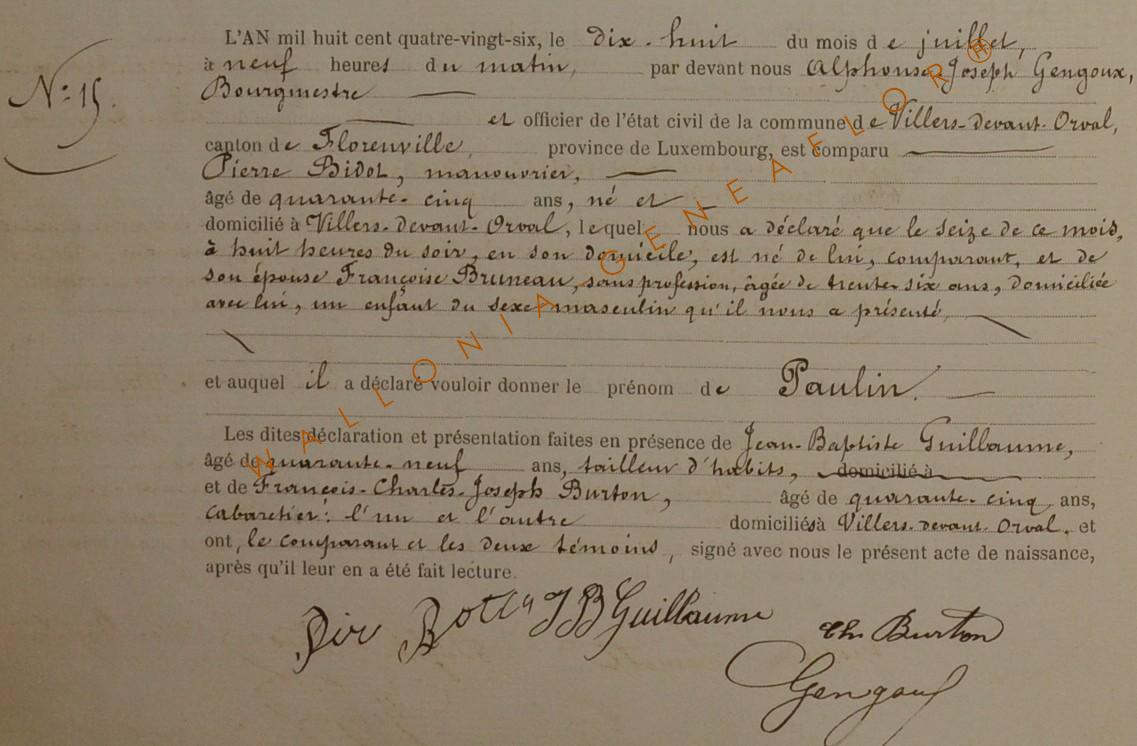 L'AN mil huit cent quatre-vingt-six, le dix-huit du mois de juillet,
à neuf heures du matin, par devant nous Alphonse Joseph Gengoux,
Nº 15.
Bourgmestre
et officier de l'état civil de la commune de Villers-devant-Orval,
canton de Florenville, province de Luxembourg, est comparu
Pierre Bidot, manouvrier,
âgé de quarante-cinq ans, né et
domicilié à Villers-devant-Orval, lequel nous a déclaré que le seize de ce mois,
à huit heures du soir, en son domicile, est né de lui, comparant, et de
son épouse Françoise Bruneau, sans profession, âgée de trente-six ans, domiciliée
avec lui, un enfant du sexe masculin qu'il nous a présenté,
et auquel il a déclaré vouloir donner le prénom de Paulin.
Les dites déclaration et présentation faites en présence de Jean-Baptiste Guillaume,
âgé de quarante-neuf ans, tailleur d'habits, domicilié à
et de François-Charles-Joseph Burton, âgé de quarante-cinq ans,
cabaretier: l'un et l'autre domiciliés à Villers-devant-Orval, et
ont, le comparant et les deux témoins, signé avec nous le présent acte de naissance,
après qu'il leur en a été fait lecture.
JB Guillaume Burton
Gengoux
WALLONIA GENEAELOR®